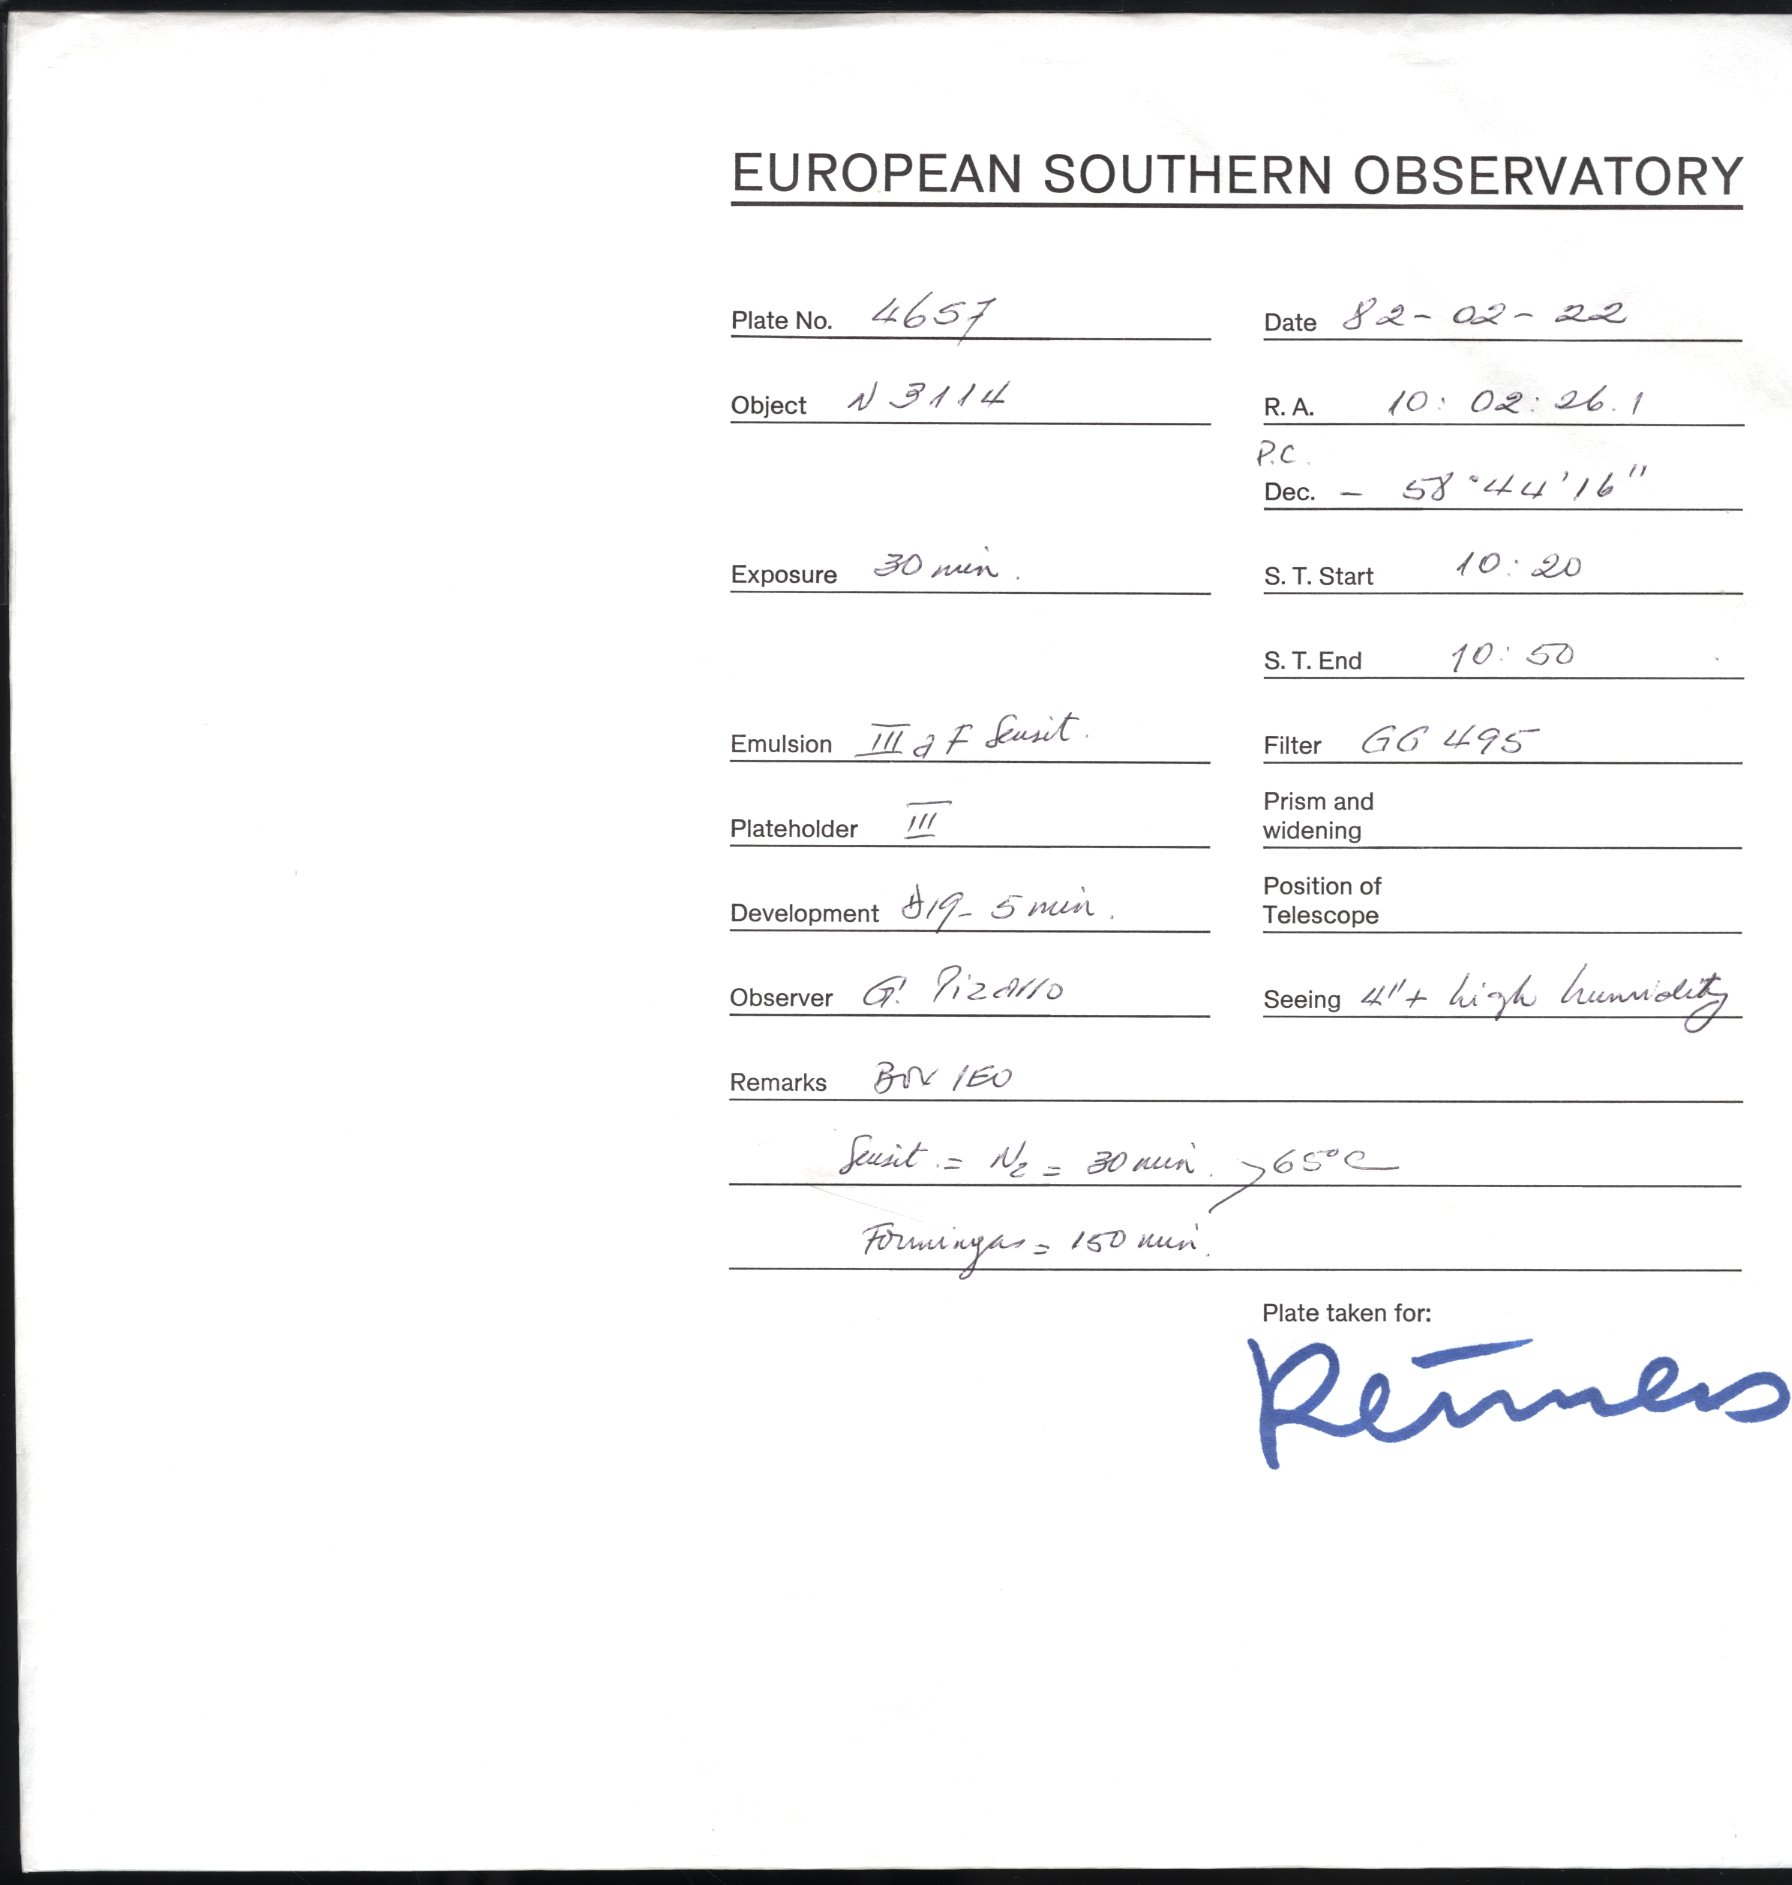 EUROPEAN SOUTHERN OBSERVATORY
Plate No. 4657 Date 82-02-22
Object N 3114 R. A. 10: 02: 26.1
P.C.
Dec. - 58°44'16"
Exposure 30 min. S. T. Start 10: 20
S. T. End 10: 50
Emulsion III a F Sensit. Filter GG 495
Plateholder III Prism and
widening
Development D19- 5 min. Position of
Telescope
Observer G. Pizarro Seeing 4"+ high humidity
Remarks Box 1E0
Sensit. = N2 = 30 min. > 65°C
Formingas = 150 min.
Plate taken for:
Reimers